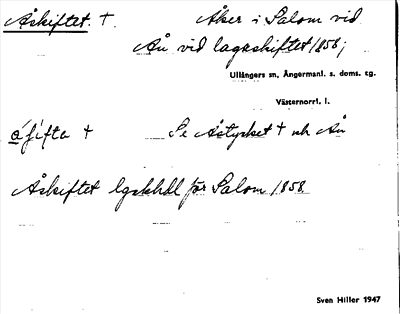 Åskiftet. †. Åker i Salom vid
Ån vid lagaskiftet 1858;
Ullångers sn, Ångermanl. s. doms. tg.
Västernorrl. l.
† Se Åstycket † och Ån
Åskiftet lgskhdl för Salom 1858.
Sven Hiller 1947